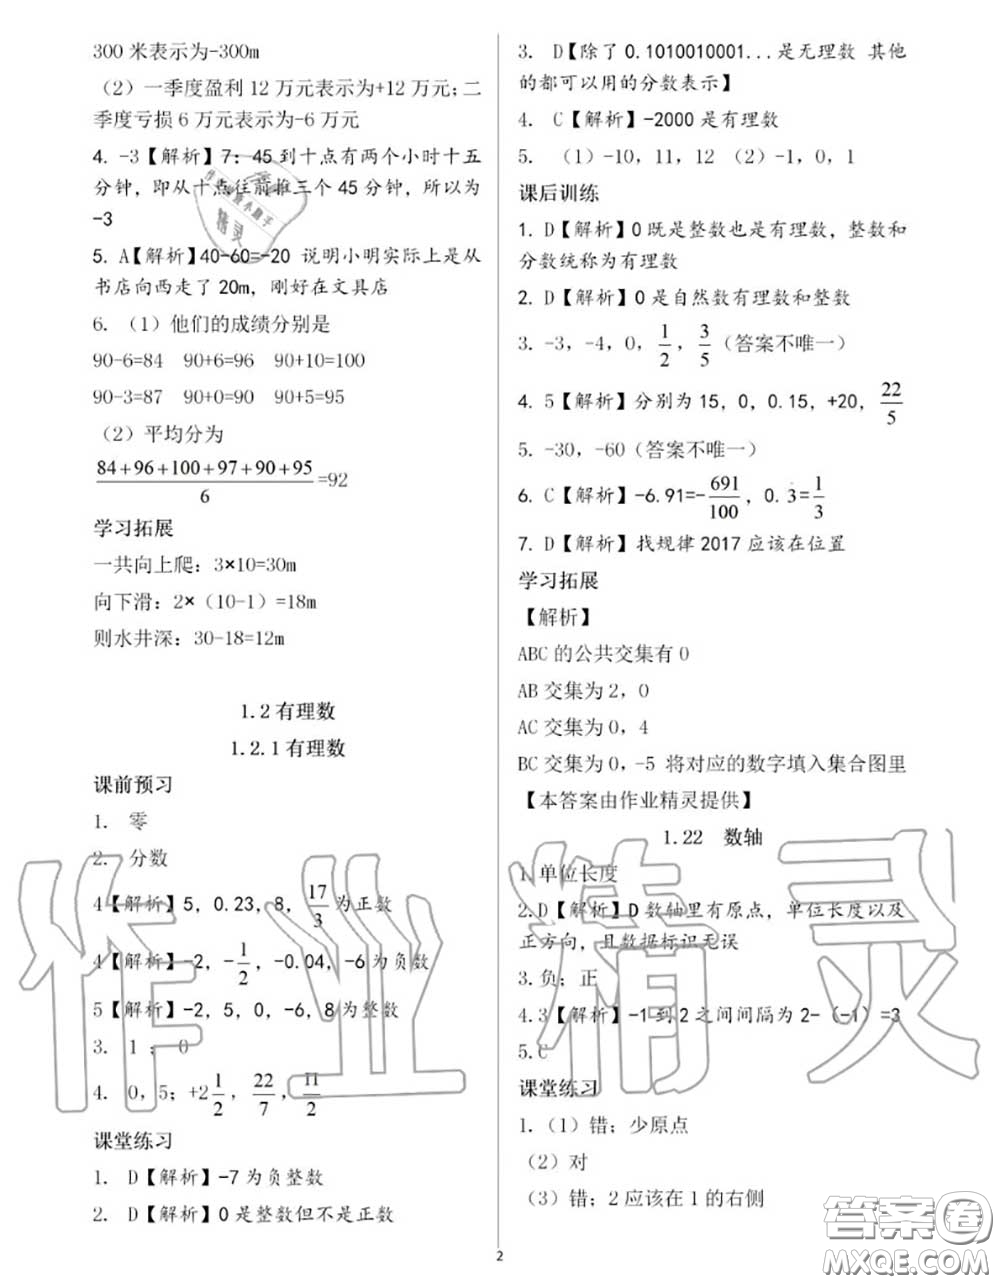 300 米表示为-300m
（2）一季度盈利 12 万元表示为+12 万元；二
季度亏损 6 万元表示为-6 万元
4. -3【解析】7：45 到十点有两个小时十五
分钟，即从十点往前推三个 45 分钟，所以为
-3
5. A【解析】40-60=-20 说明小明实际上是从
书店向西走了 20m，刚好在文具店
6. （1）他们的成绩分别是
90-6=84 90+6=96 90+10=100
90-3=87 90+0=90 90+5=95
（2）平均分为
84+96+100+97+90+95
6
=92
学习拓展
一共向上爬：3×10=30m
向下滑：2×（10-1）=18m
则水井深：30-18=12m
1.2 有理数
1.2.1 有理数
课前预习
1. 零
2. 分数
4【解析】5，0.23，8，17/3 为正数
4【解析】-2，-1/2，-0.04，-6 为负数
5【解析】-2，5，0，-6，8 为整数
3. 1 ； 0
4. 0，5；+2 1/2，22/7，11/2
课堂练习
1. D【解析】-7 为负整数
2. D【解析】0 是整数但不是正数
3. D【除了 0.1010010001...是无理数 其他
的都可以用的分数表示】
4. C【解析】-2000 是有理数
5. （1）-10，11，12 （2）-1，0，1
课后训练
1. D【解析】0 既是整数也是有理数，整数和
分数统称为有理数
2. D【解析】0 是自然数有理数和整数
3. -3，-4，0，1/2，3/5（答案不唯一）
4. 5【解析】分别为 15，0，0.15，+20，22/5
5. -30，-60（答案不唯一）
6. C【解析】-6.91=-691/100，0.3̇=1/3
7. D【解析】找规律 2017 应该在位置
学习拓展
【解析】
ABC 的公共交集有 0
AB 交集为 2，0
AC 交集为 0，4
BC 交集为 0，-5 将对应的数字填入集合图里
【本答案由作业精灵提供】
1.22 数轴
1.单位长度
2.D【解析】D 数轴里有原点，单位长度以及
正方向，且数据标识无误
3.负；正
4.3【解析】-1 到 2 之间间隔为 2-（-1）=3
5.C
课堂练习
1.（1）错；少原点
（2）对
（3）错；2 应该在 1 的右侧
2
作业精灵
答案圈
MXQE.COM